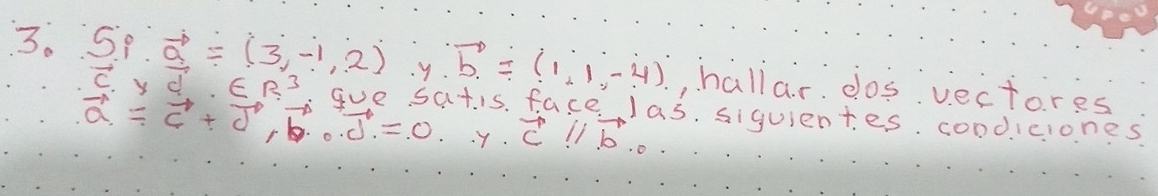 3. Si a⃗ = (3,-1,2) y b⃗ = (1,1,-4), hallar dos vectores
c⃗ y d⃗ ∈ R³ que satisface las siguientes condiciones
a⃗ = c⃗ + d⃗, b⃗ . d⃗ = 0 y c⃗ // b⃗.
UPCU